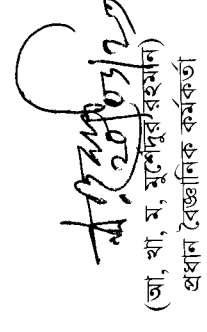 ২০/০৩/২৩
(আ, খা, ম, মুর্শেদুর রহমান)
প্রধান বৈজ্ঞানিক কর্মকর্তা